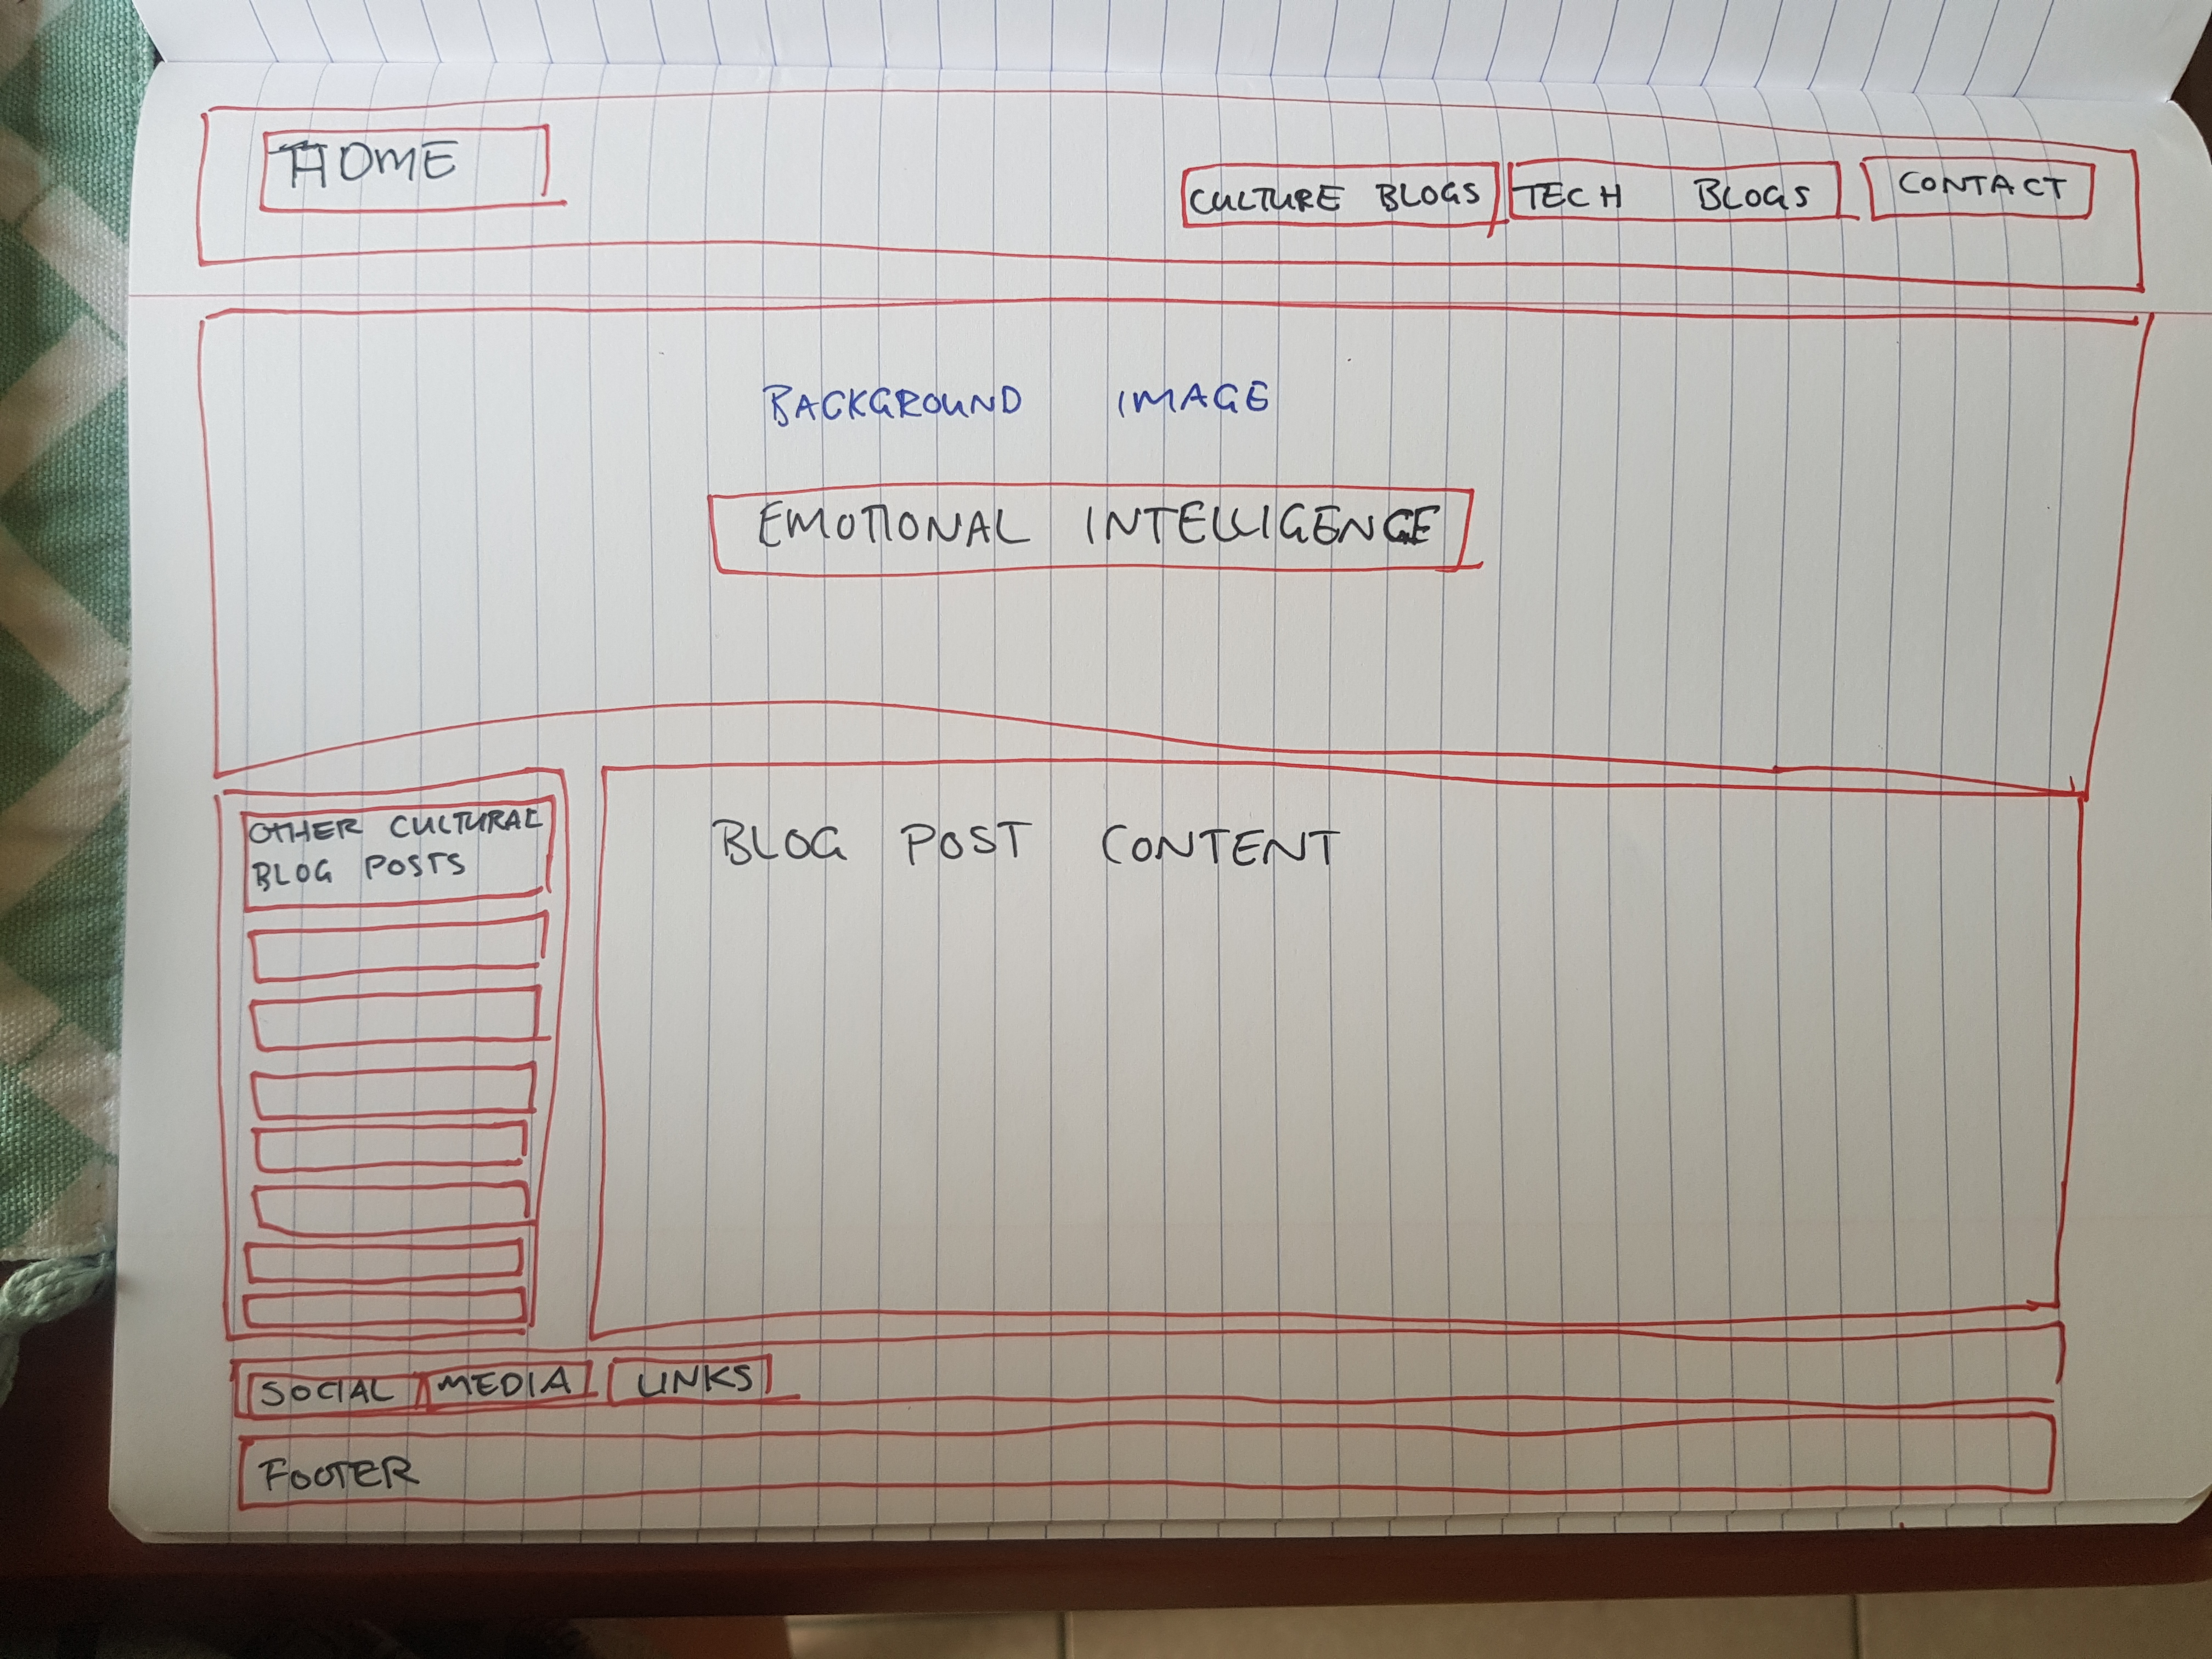 HOME
CULTURE BLOGS TECH BLOGS CONTACT
BACKGROUND IMAGE
EMOTIONAL INTELLIGENCE
OTHER CULTURAL
BLOG POSTS
BLOG POST CONTENT
SOCIAL MEDIA LINKS
FOOTER